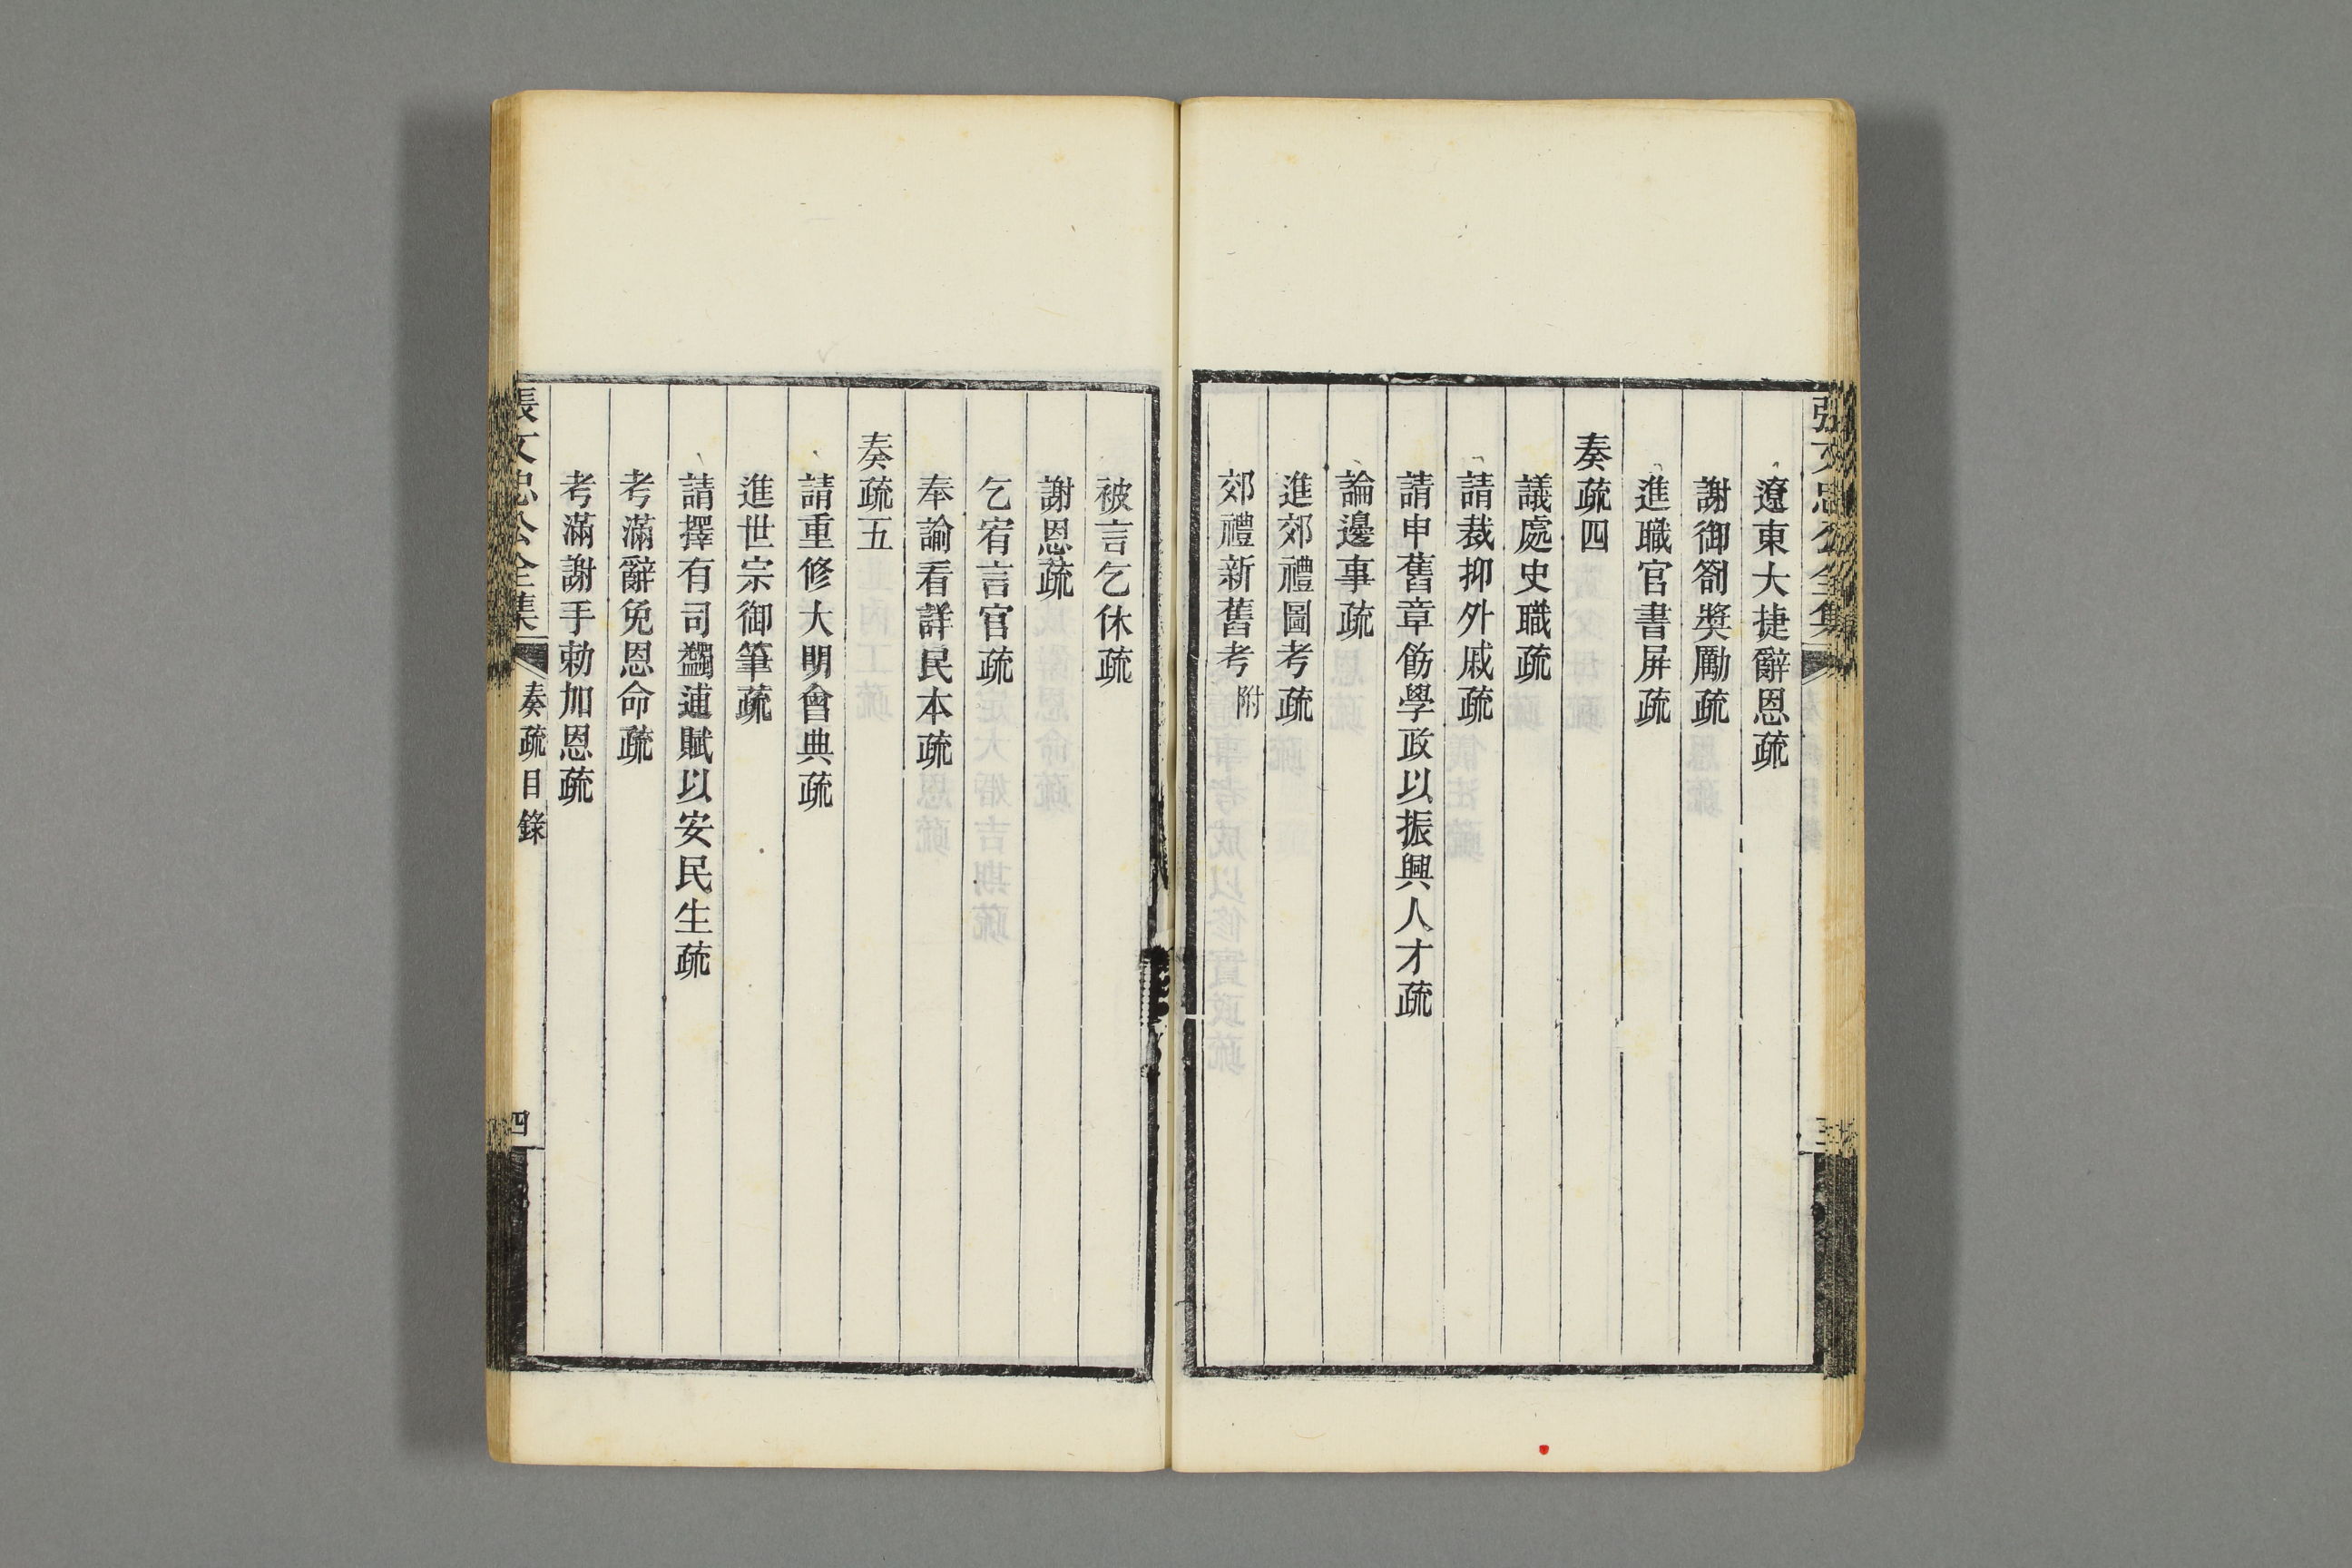 張文忠公全集
遼東大捷辭恩疏
謝御劄獎勵疏
進職官書屏疏
奏疏四
議處史職疏
請裁抑外戚疏
請申舊章飭學政以振興人才疏
論邊事疏
進郊禮圖考疏
郊禮新舊考附
被言乞休疏
謝恩疏
乞宥言官疏
奉諭看詳民本疏
奏疏五
請重修大明會典疏
進世宗御筆疏
請擇有司蠲逋賦以安民生疏
考滿辭免恩命疏
考滿謝手勅加恩疏
張文忠公全集 奏疏目錄 四